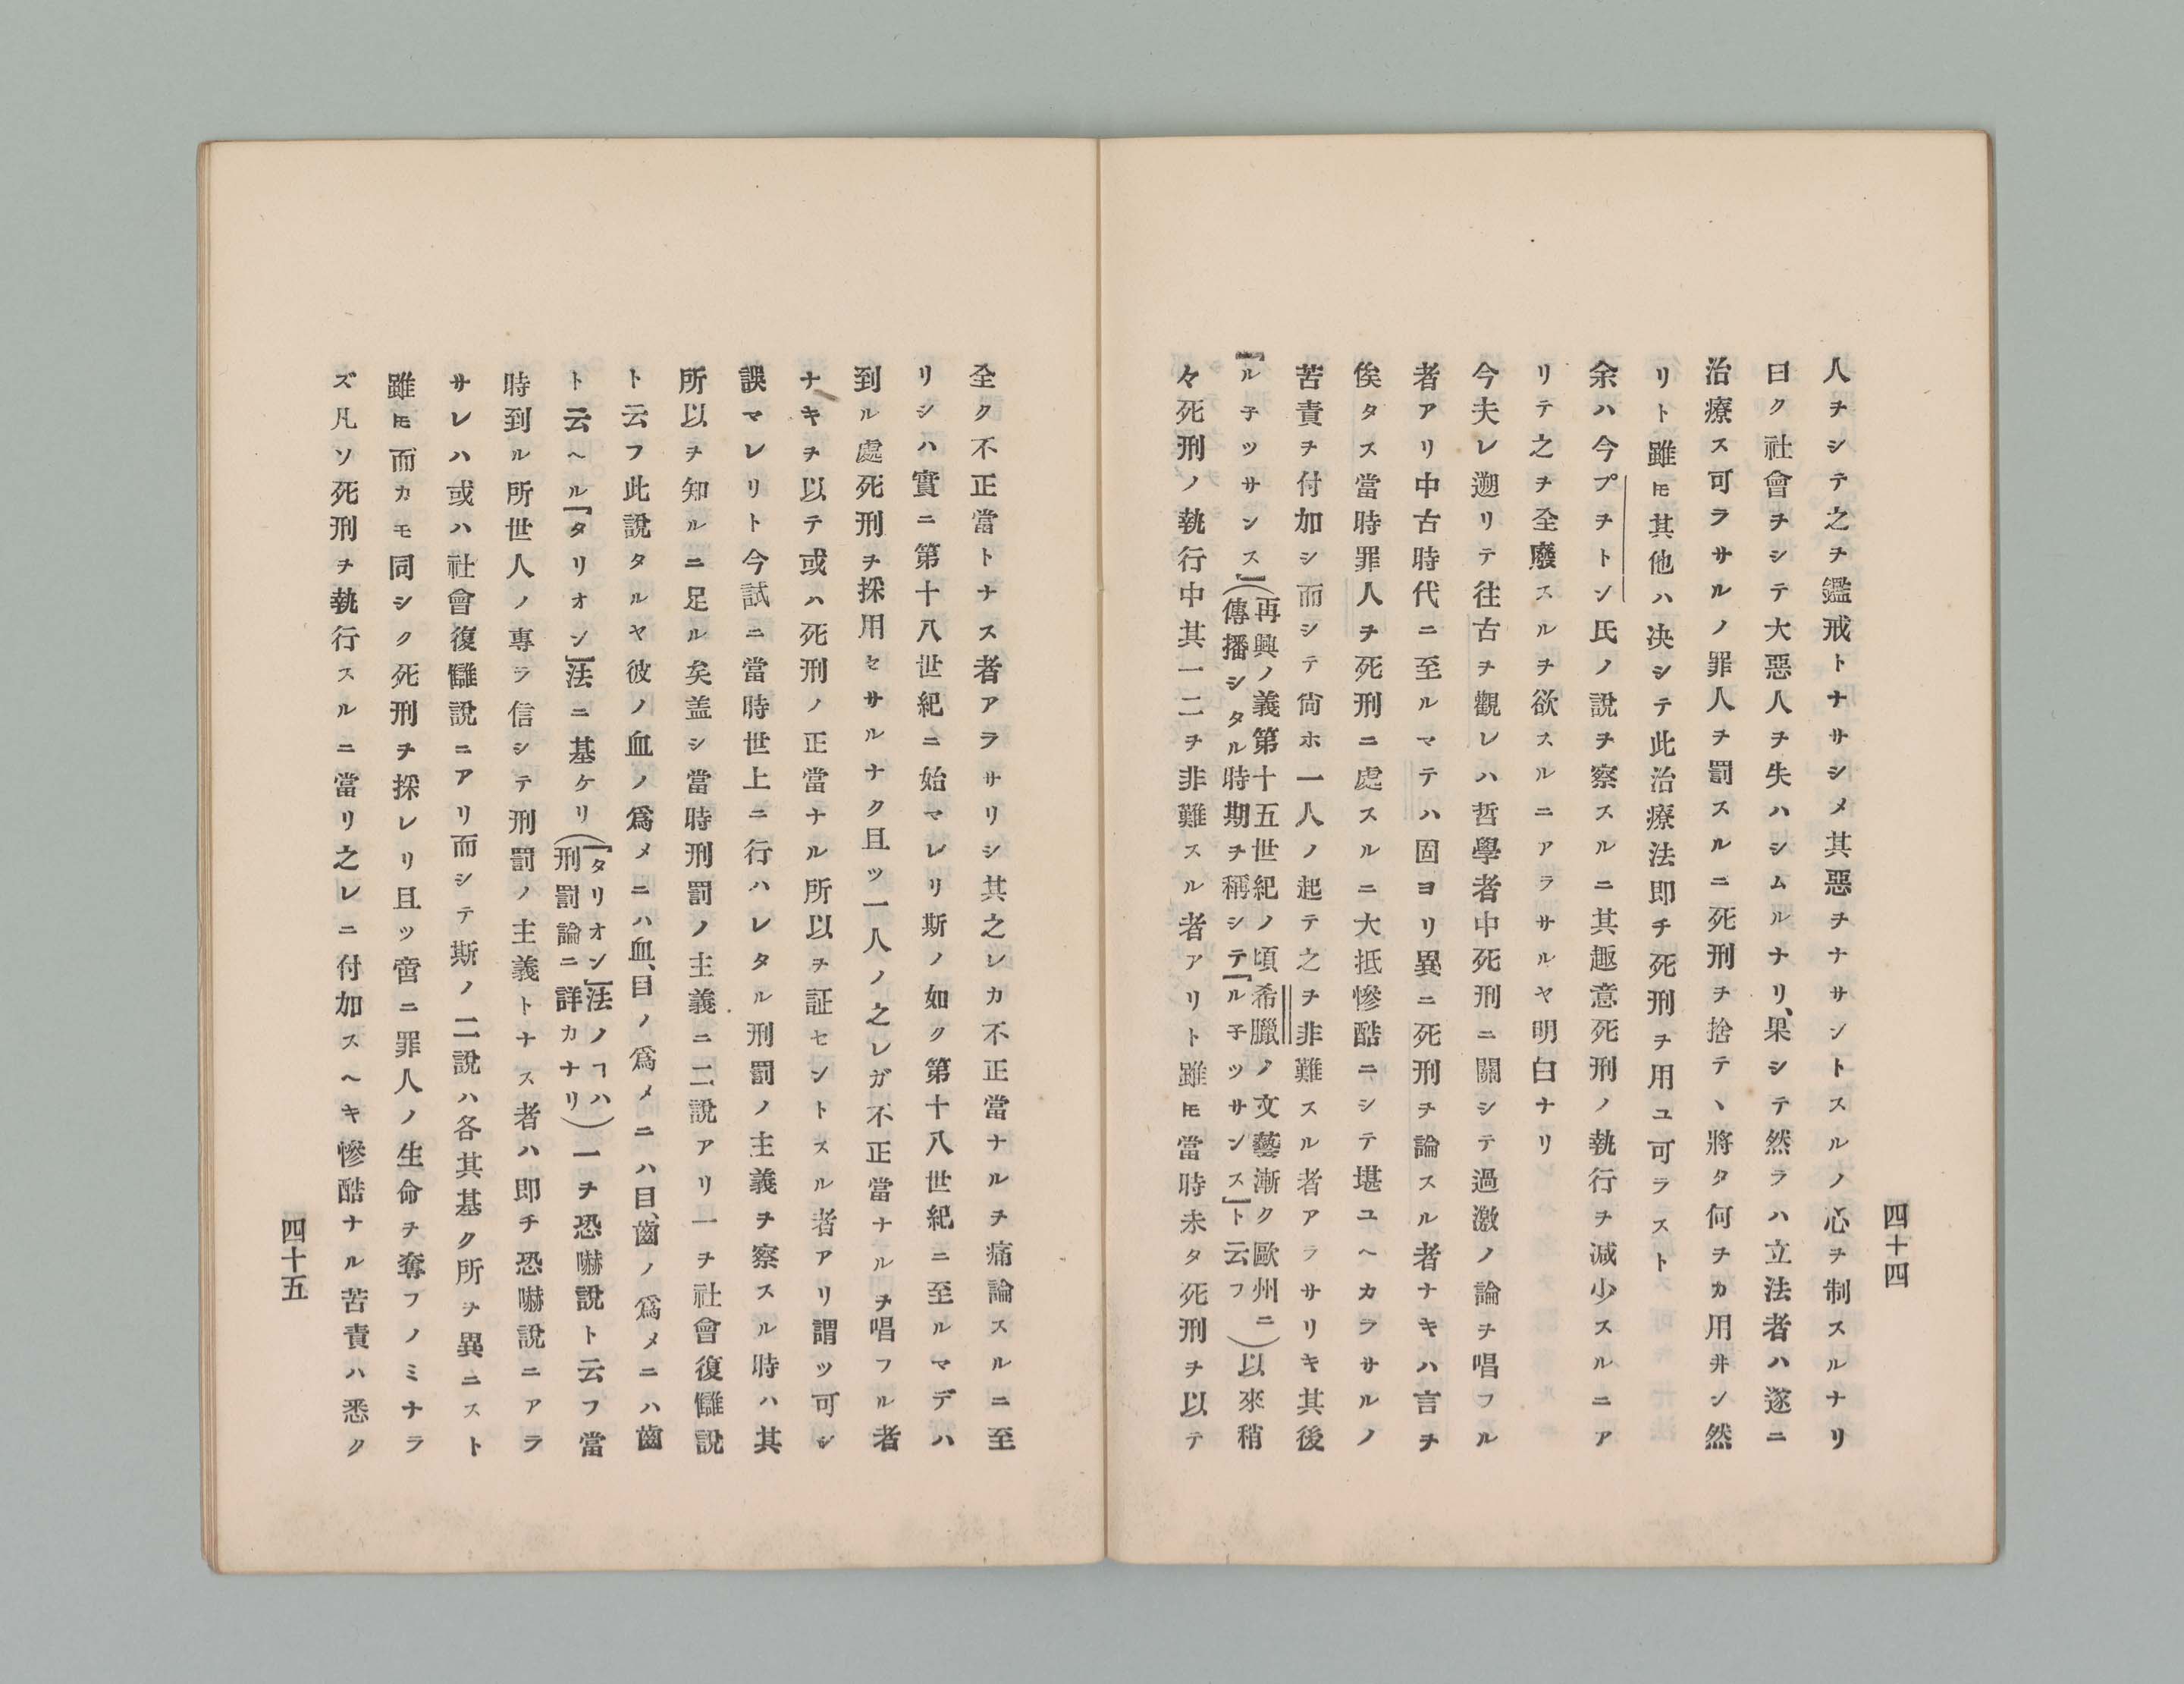 四十四
人ヲシテ之ヲ鑑戒トナサシメ其惡ヲナサントスルノ心ヲ制スルナリ
曰ク社會ヲシテ大惡人ヲ失ハシムルナリ、果シテ然ラハ立法者ハ遂ニ
治療ス可ラサルノ罪人ヲ罰スルニ死刑ヲ捨テヽ將タ何ヲカ用井ン然
リト雖𪜈其他ハ决シテ此治療法即チ死刑ヲ用ユ可ラスト
余ハ今プラトン氏ノ說ヲ察スルニ其趣意死刑ノ執行ヲ減少スルニア
リテ之ヲ全廢スルヲ欲スルニアラサルヤ明白ナリ
今夫レ遡リテ往古ヲ觀レハ哲學者中死刑ニ關シテ過激ノ論ヲ唱フル
者アリ中古時代ニ至ルマテハ固ヨリ異ニ死刑ヲ論スル者ナキハ言ヲ
俟タス當時罪人ヲ死刑ニ處スルニ大抵慘酷ニシテ堪ユヘカラサルノ
苦責ヲ付加シ而シテ尙ホ一人ノ起テ之ヲ非難スル者アラサリキ其後
「ル子ツサンス」(再興ノ義第十五世紀ノ頃希臘ノ文藝漸ク歐州ニ傳播シタル時期ヲ稱シテ「ル子ツサンス」ト云フ)以來稍
々死刑ノ執行中其一二ヲ非難スル者アリト雖𪜈當時未タ死刑ヲ以テ
全ク不正當トナス者アラサリシ其之レカ不正當ナルヲ痛論スルニ至
リシハ實ニ第十八世紀ニ始マレリ斯ノ如ク第十八世紀ニ至ルマデハ
到ル處死刑ヲ採用セサルナク且ツ一人ノ之レガ不正當ナルヲ唱フル者
ナキヲ以テ或ハ死刑ノ正當ナル所以ヲ証セントスル者アリ謂ツ可シ
誤マレリト今試ニ當時世上ニ行ハレタル刑罰ノ主義ヲ察スル時ハ其
所以ヲ知ルニ足ル矣盖シ當時刑罰ノ主義ニ二說アリ一ヲ社會復讎說
ト云フ此說タルヤ彼ノ血ノ爲メニハ血、目ノ爲メニハ目、齒ノ爲メニハ齒
ト云ヘル「タリオン」法ニ基ケリ(「タリオン」法ノヿハ刑罰論ニ詳カナリ)一ヲ恐嚇說ト云フ當
時到ル所世人ノ專ラ信シテ刑罰ノ主義トナス者ハ即チ恐嚇說ニアラ
サレハ或ハ社會復讎說ニアリ而シテ斯ノ二說ハ各其基ク所ヲ異ニスト
雖𪜈而カモ同シク死刑ヲ採レリ且ツ啻ニ罪人ノ生命ヲ奪フノミナラ
ズ凡ソ死刑ヲ執行スルニ當リ之レニ付加スヘキ慘酷ナル苦責ハ悉ク
四十五